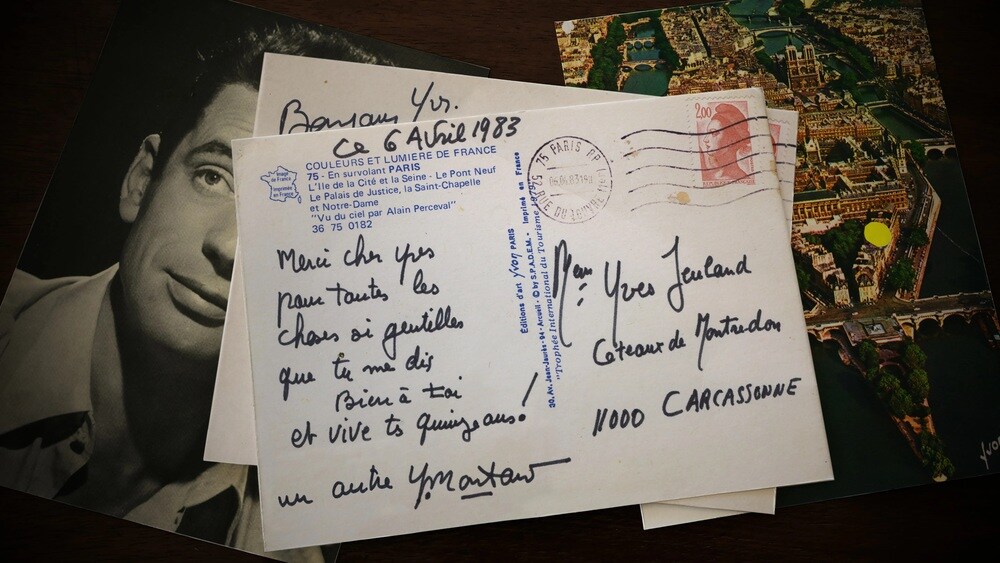 Bonjour Yves.
Ce 6 Avril 1983
COULEURS ET LUMIERE DE FRANCE
75 - En survolant PARIS
L'Ile de la Cité et la Seine - Le Pont Neuf
Le Palais de Justice, la Saint-Chapelle
et Notre-Dame
"Vu du ciel par Alain Perceval"
36 75 0182
Image
de France
Imprimée
en France
Merci cher Yves
pour toutes les
choses si gentilles
que tu me dis
Bien à toi
et vive ts quinze ans!
un autre YMontand
Editions d'art Yvon PARIS
30, Av. Jean-Jaurès - 94 - Arcueil - © by S.P.A.D.E.M. - Imprimé en France
"Trophée International du Tourisme
75 PARIS RP
52 RUE DU LOUVRE
2,00
Yves
Coteaux de Montredon
11000 CARCASSONNE
yvon